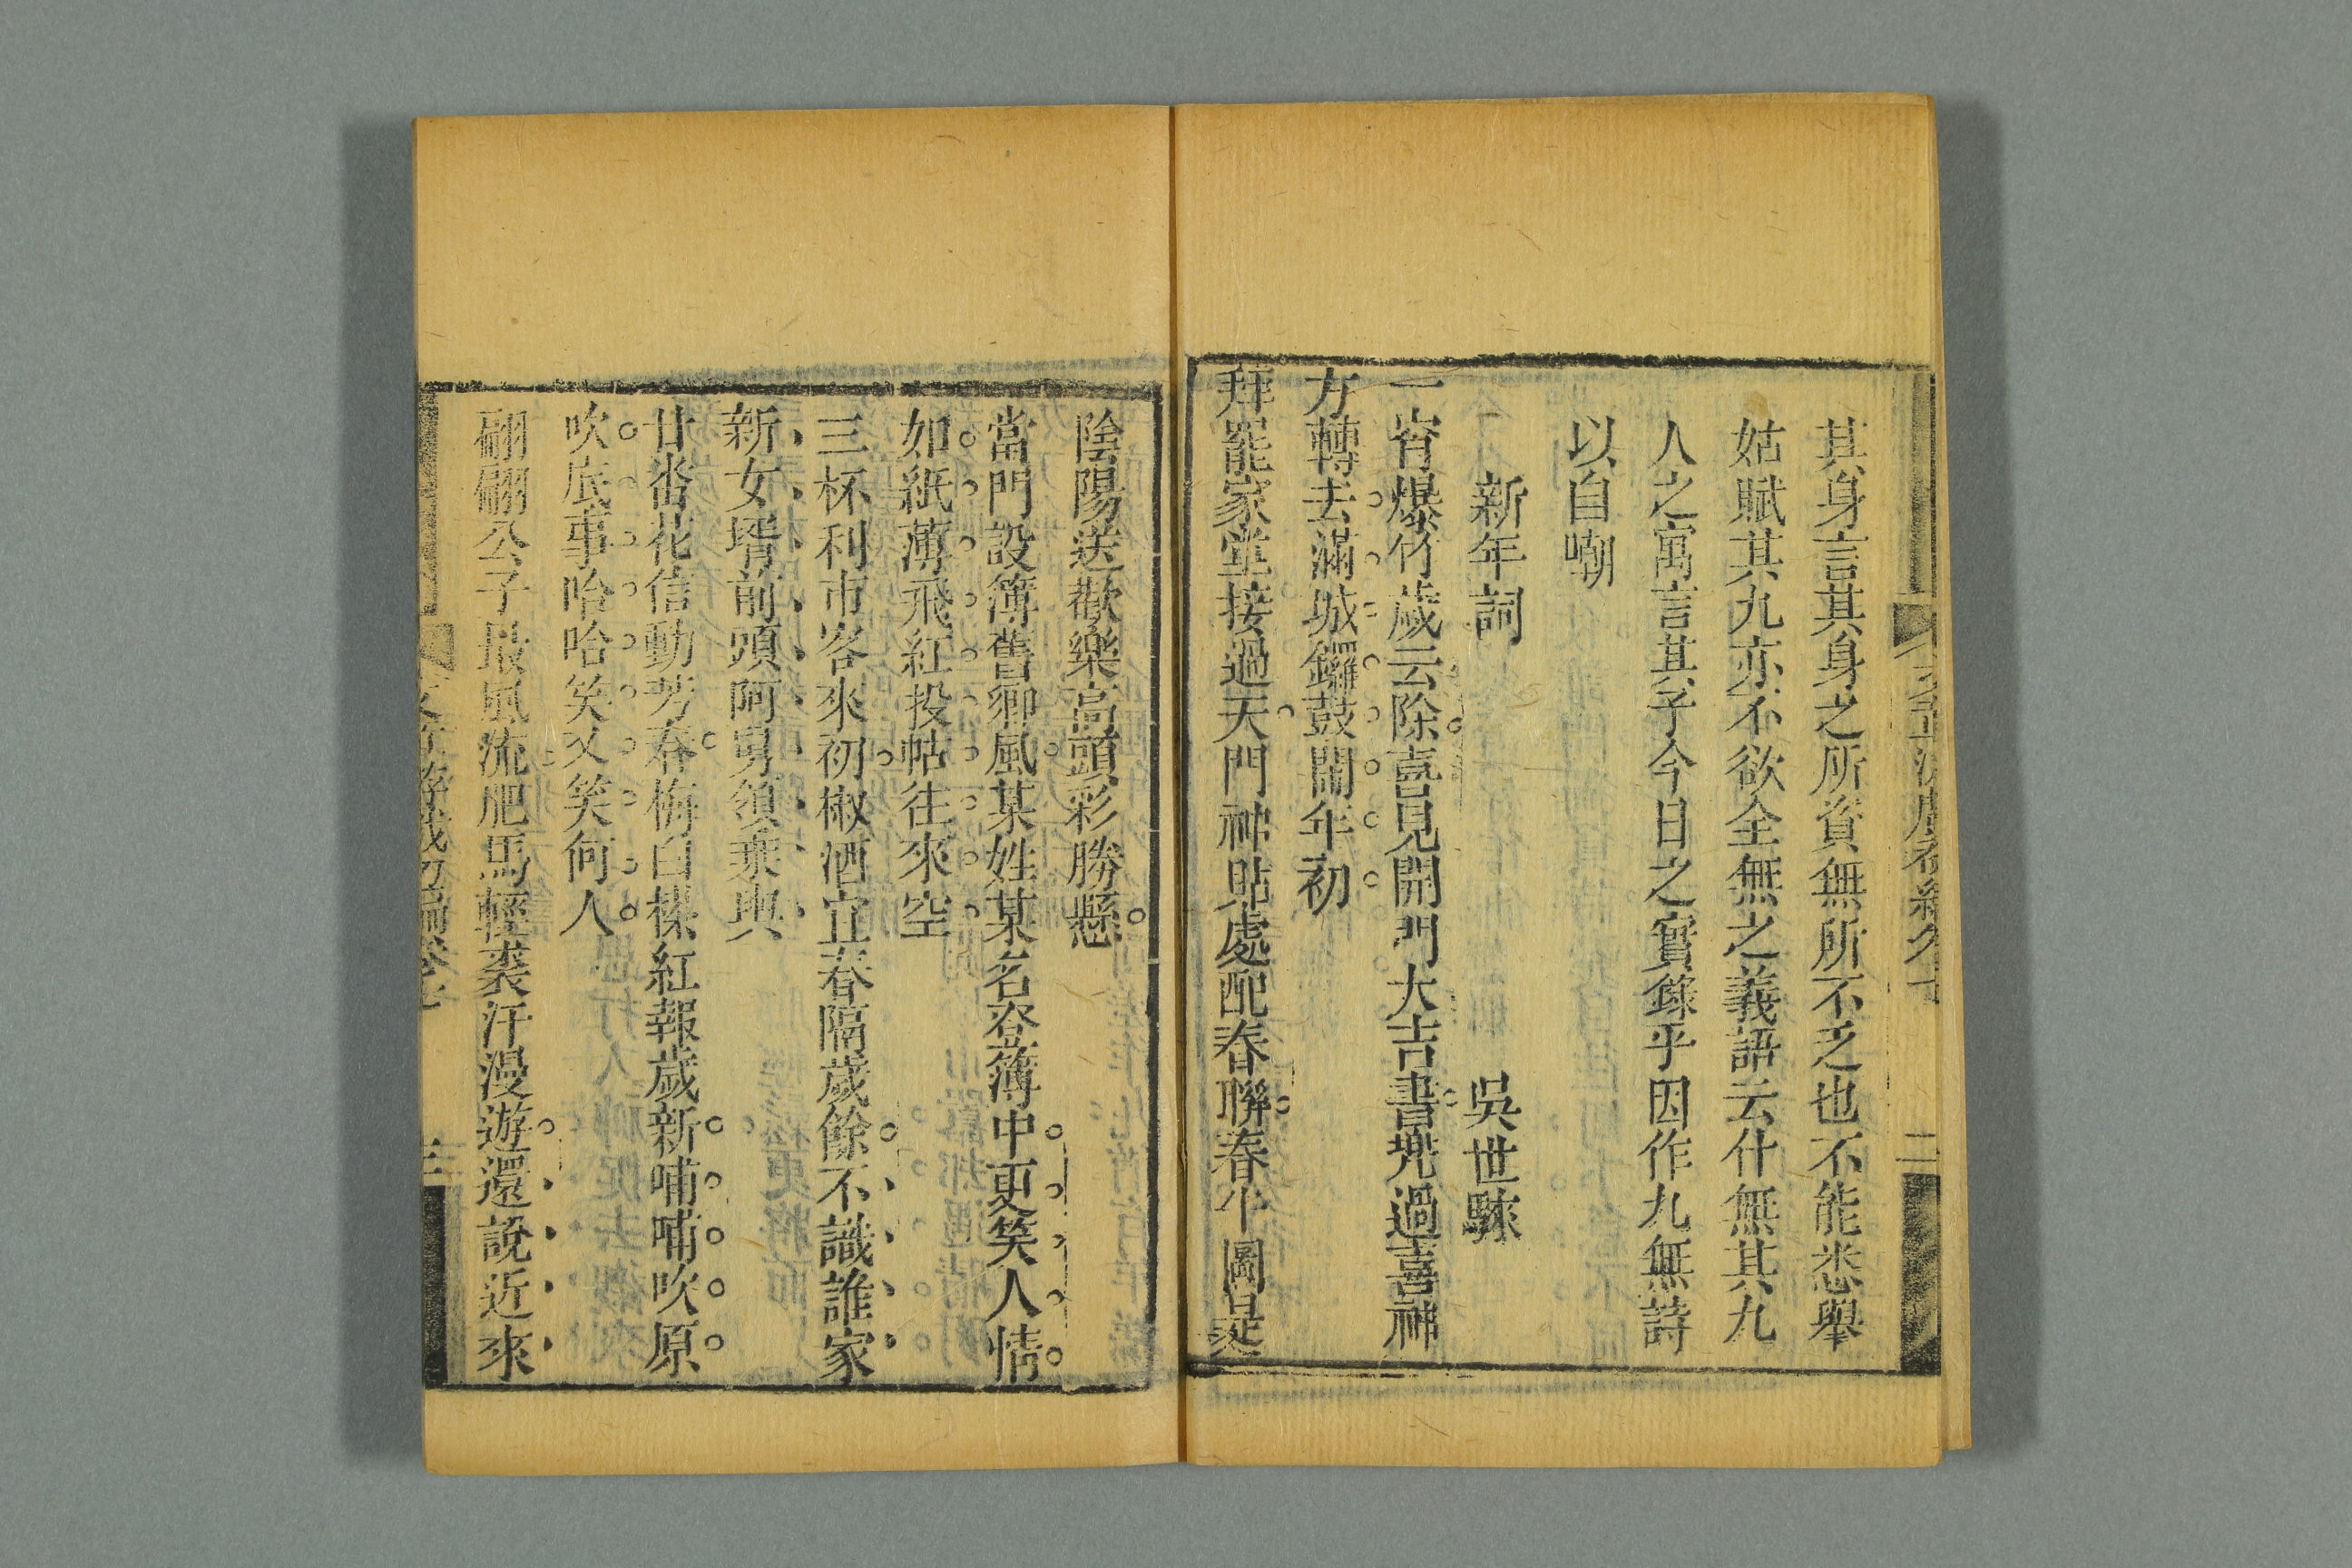 其身言其身之所資無所不乏也不能悉舉
姑賦其九亦不欲全無之義語云什無其九
人之寓言其子今日之實錄乎因作九無詩
以自嘲
新年詞 吳世騄
一宵爆竹歲云除喜見開門大吉書兜過喜神
方轉去滿城鑼鼓鬧年初
拜罷家堂接過天門神貼處配春聯春牛圖是
陰陽送歡樂高頭彩勝懸
當門設簿舊鄉風某姓某名登簿中更笑人情
如紙薄飛紅投帖往來空
三杯利市客來初椒酒宜春隔歲餘不識誰家
新女壻前頭阿舅領乘輿
廿番花信動芳春梅白樣紅報歲新哺哺吹原
吹底事哈哈笑又笑何人
翩翩公子最風流肥馬輕裘汗漫遊還說近來
二
三